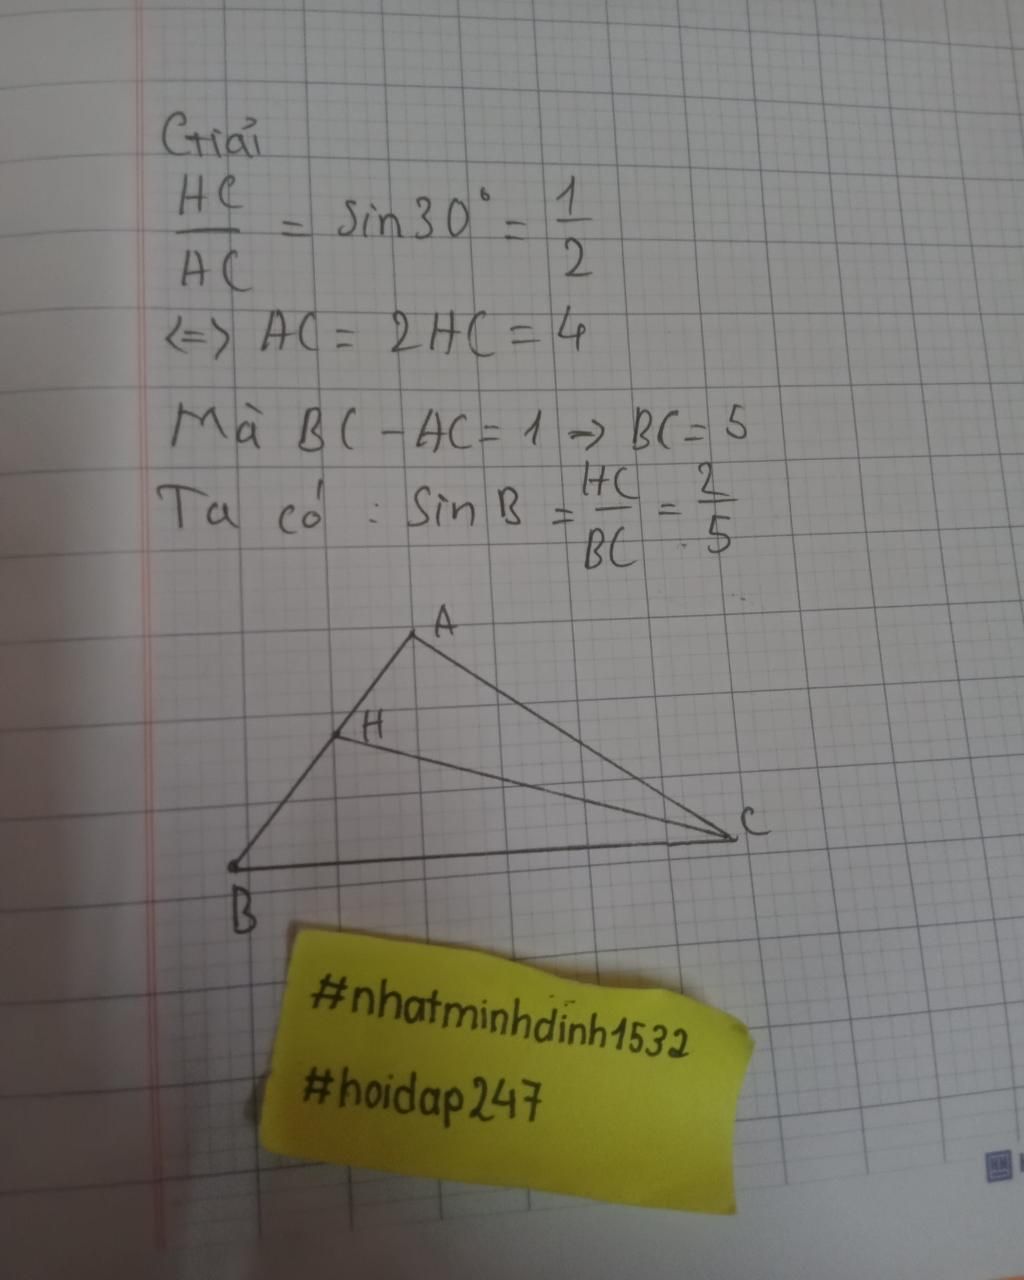 Giải
HC/AC = Sin30° = 1/2
<=> AC = 2HC = 4
Mà BC - AC = 1 -> BC = 5
Ta có : Sin B = HC/BC = 2/5
A
H
C
B
#nhatminhdinh1532
#hoidap247